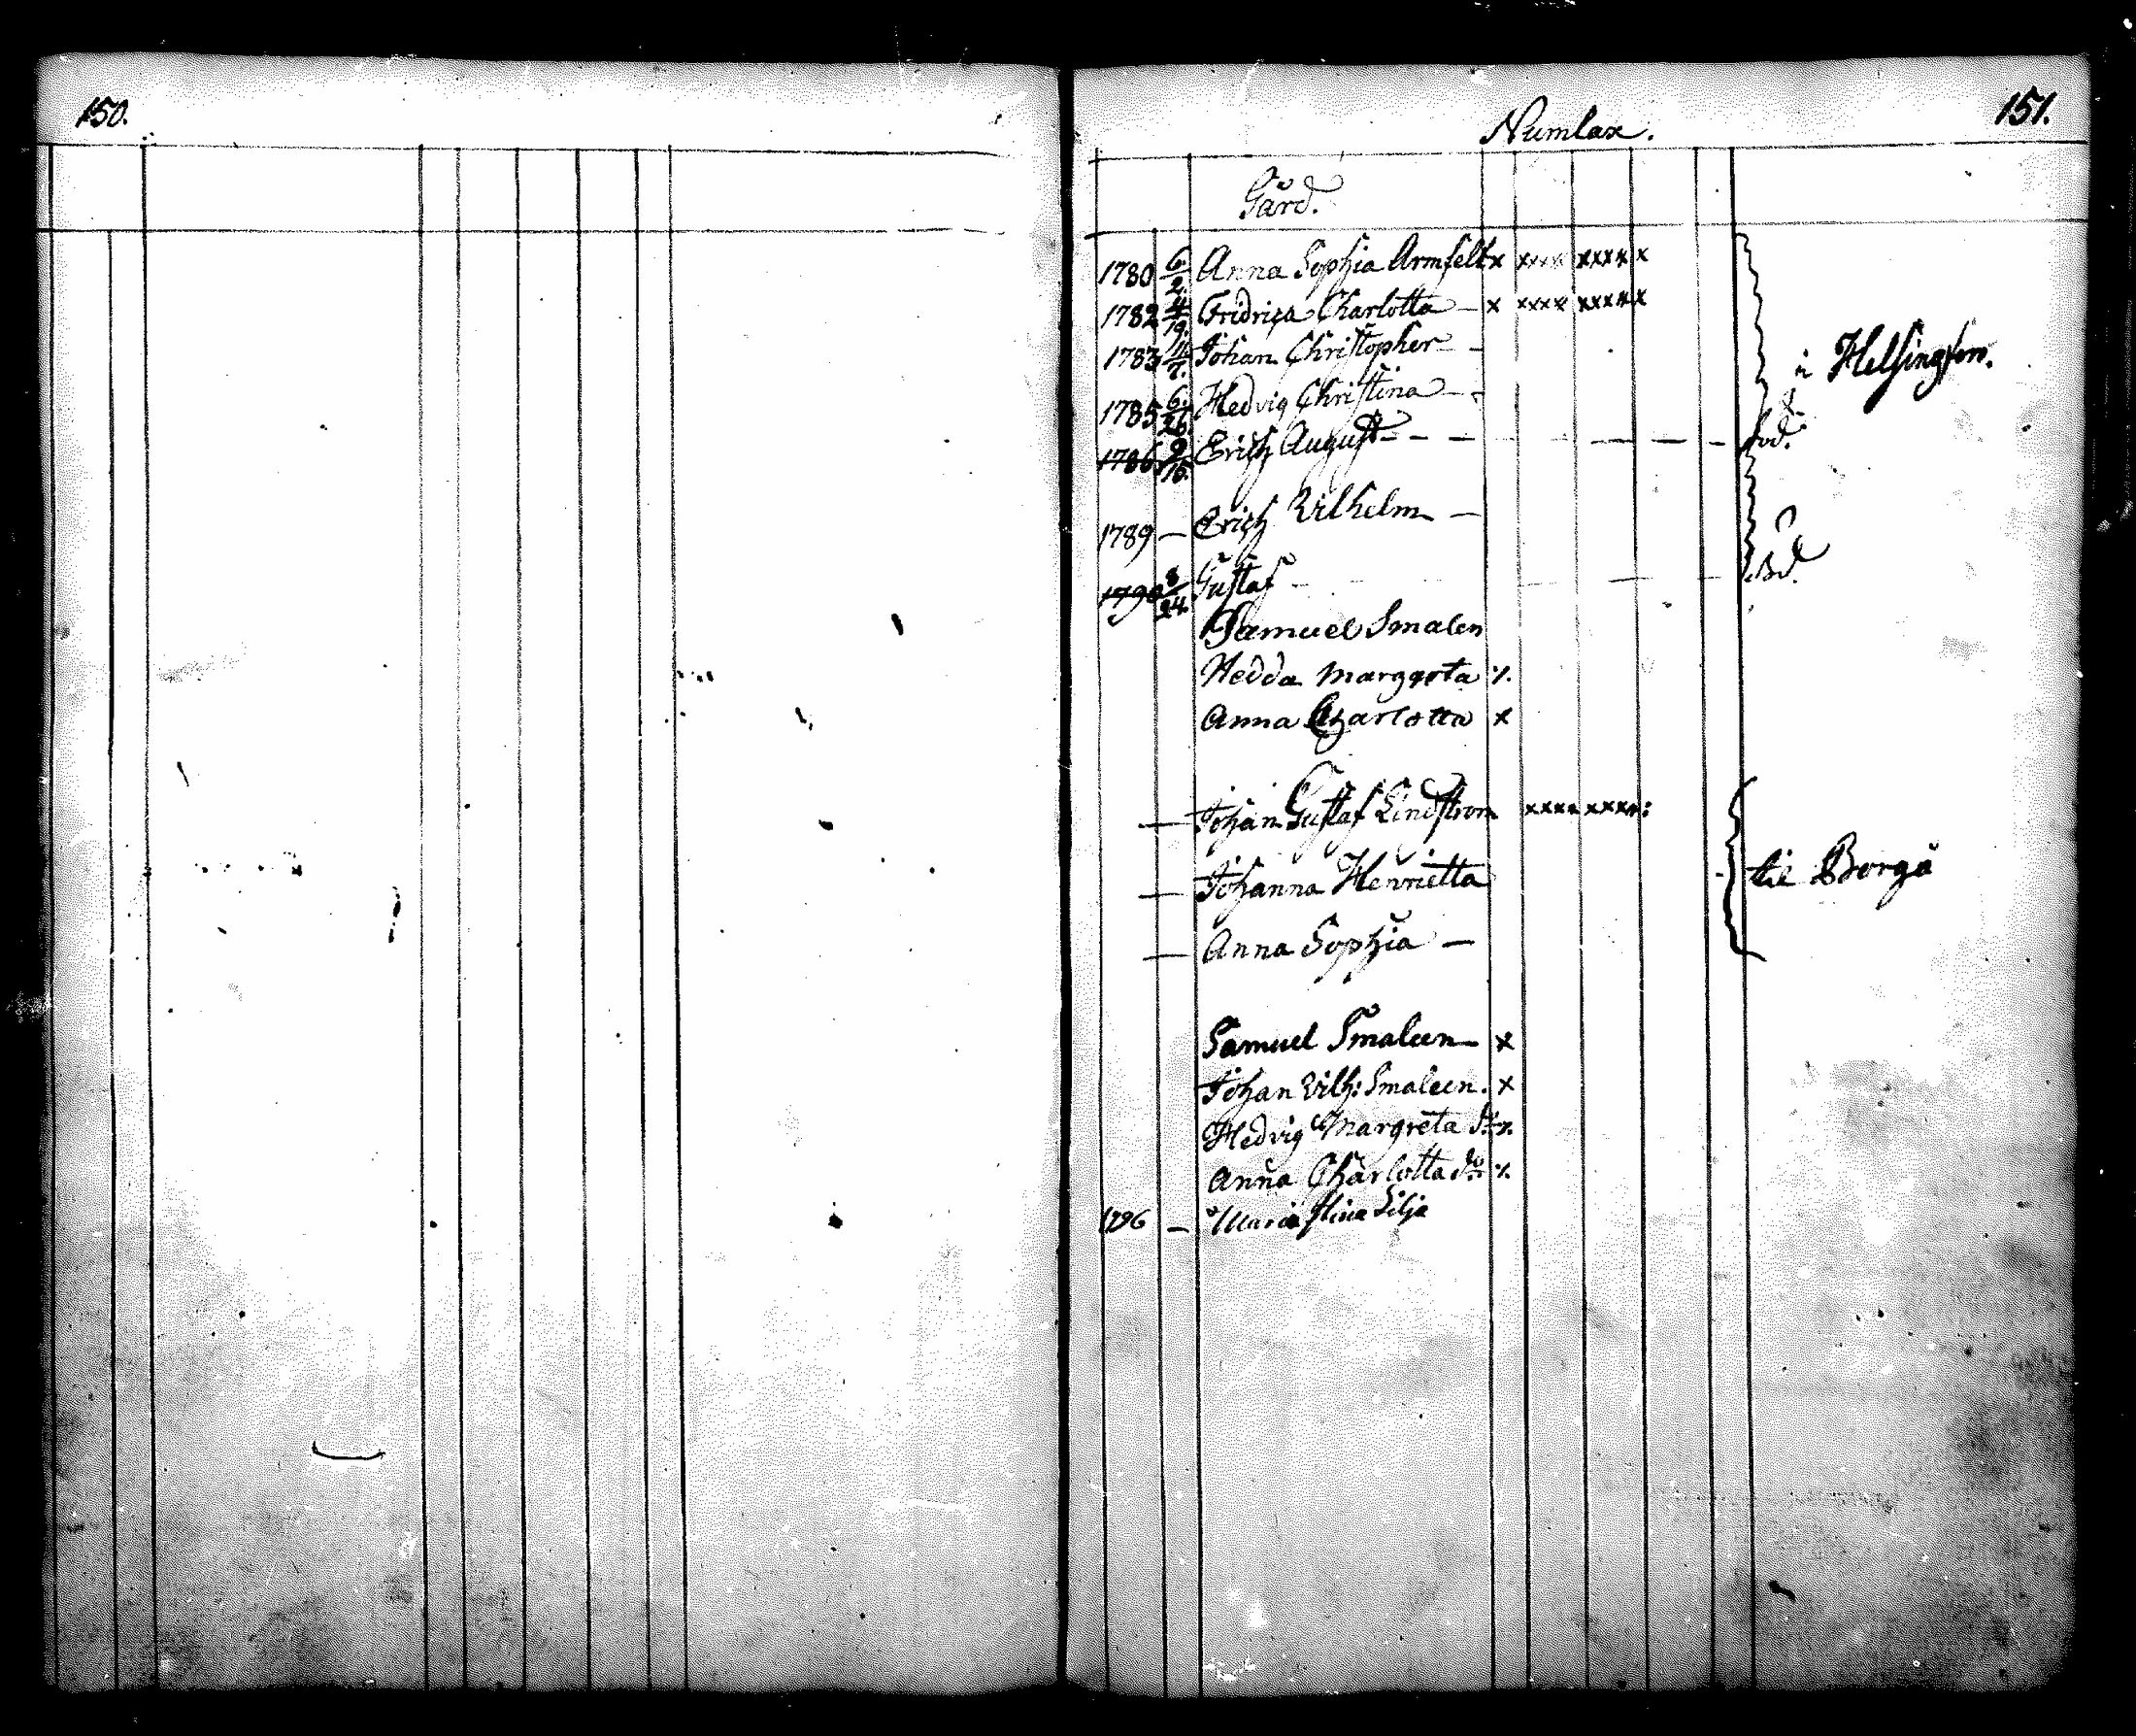 150.
151.
Numlax.
Gård.
1780 6/2. Anna Sophia Armfelt x xxxx xxxx x
1782 4/19. Fridrica Charlotta — x xxxx xxxx x
1783 11/7. Johan Christopher —
i Helsingfors.
1785 6/26. Hedvig Christina —
1786 9/15. Erich August — — — död.
1789 — Erich Vilhelm —
1790 8/24. Gustaf — död.
Samuel Smalen
Hedda Margreta ⁒
Anna Charlotta x
— Johan Gustaf Lindström xxxx xxxx:
— Johanna Henrietta
til Borgå
— Anna Sophia —
Samuel Smaleen — x
Johan Vilh: Smaleen. x
Hedvig Margreta do ⁒
Anna Charlotta do ⁒
1796 — Maria Stina Silja